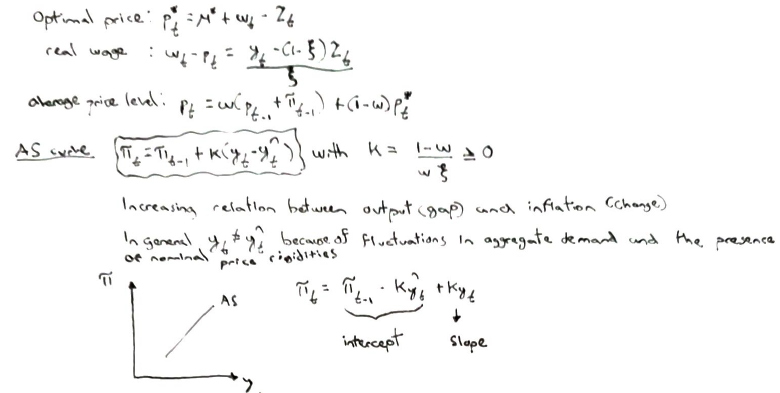 Optimal price: p*_t = μ* + w_t - Z_t
real wage : w_t - p_t = (y_t - (1-ξ)Z_t) / ξ
average price level: p_t = ω(p_{t-1} + π_{t-1}) + (1-ω)p*_t
AS curve π_t = π_{t-1} + κ(y_t - y^n_t) with κ = (1-ω) / (ωξ) ≥ 0
Increasing relation between output (gap) and inflation (change)
In general y_t ≠ y^n_t because of fluctuations in aggregate demand and the presence
of nominal price rigidities
π
AS
y
π_t = π_{t-1} - κy^n_t + κy_t
intercept slope